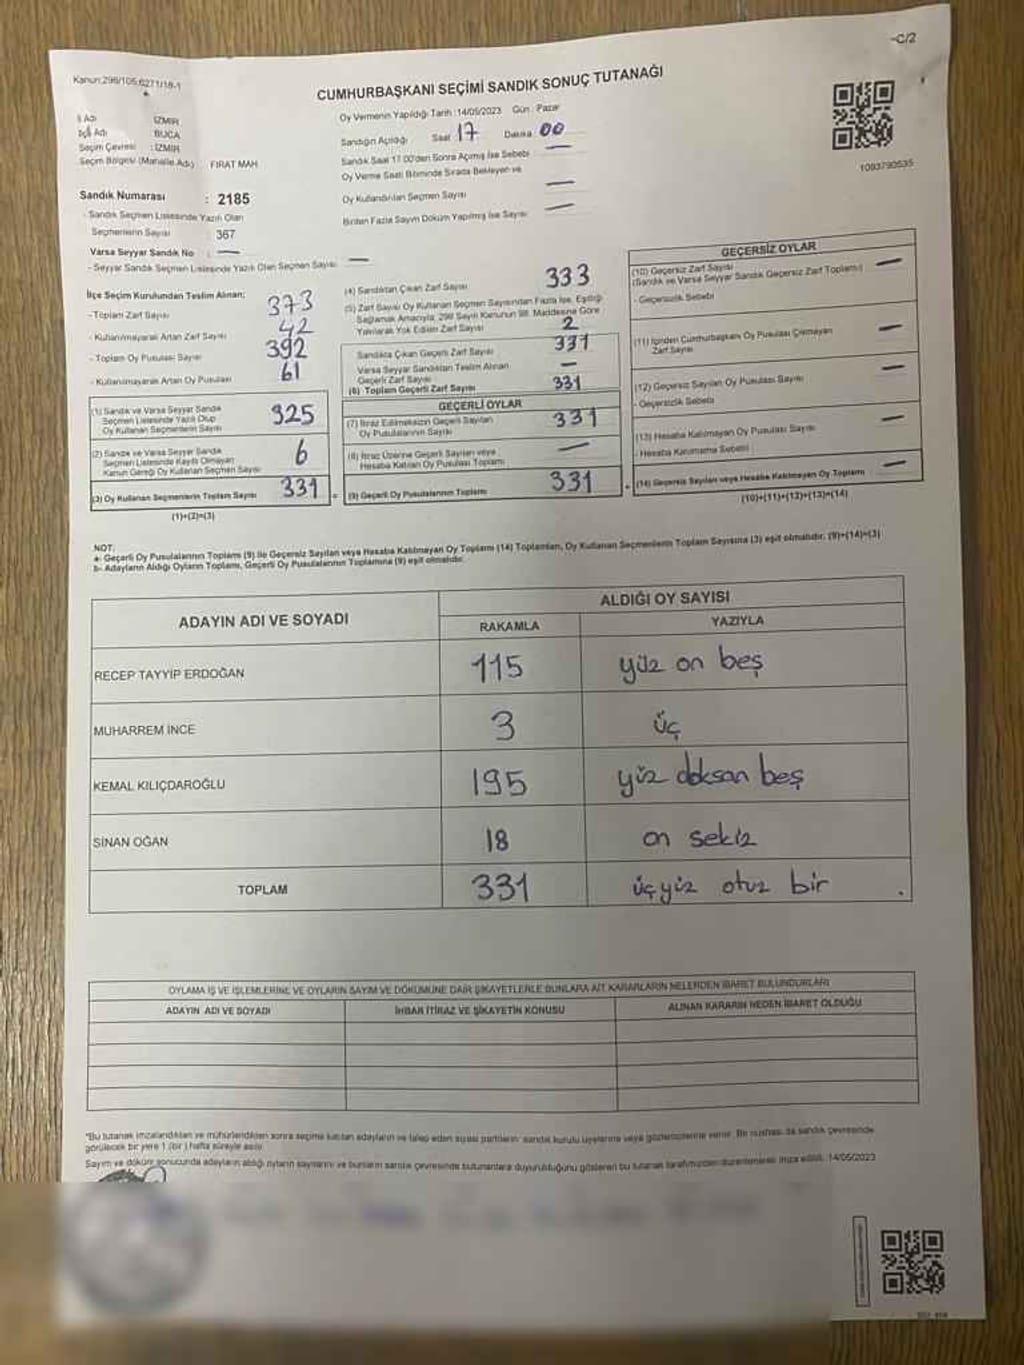 -C/2
Kanun:298/105,6271/18-1
CUMHURBAŞKANI SEÇİMİ SANDIK SONUÇ TUTANAĞI
İl Adı İZMİR
İlçe Adı BUCA
Seçim Çevresi : İZMİR
Seçim Bölgesi (Mahalle Adı) FIRAT MAH
Sandık Numarası : 2185
- Sandık Seçmen Listesinde Yazılı Olan
Seçmenlerin Sayısı : 367
Varsa Seyyar Sandık No : —
- Seyyar Sandık Seçmen Listesinde Yazılı Olan Seçmen Sayısı —
Oy Vermenin Yapıldığı Tarih :14/05/2023 Gün : Pazar
Sandığın Açıldığı Saat 17 Dakika 00
Sandık Saat 17.00'den Sonra Açılmış İse Sebebi —
Oy Verme Saati Bitiminde Sırada Bekleyen ve
Oy Kullandırılan Seçmen Sayısı —
Birden Fazla Sayım Döküm Yapılmış İse Sayısı —
1093790535
İlçe Seçim Kurulundan Teslim Alınan;
-Toplam Zarf Sayısı 373
- Kullanılmayarak Artan Zarf Sayısı 42
- Toplam Oy Pusulası Sayısı 392
- Kullanılmayarak Artan Oy Pusulası 61
(1) Sandık ve Varsa Seyyar Sandık
Seçmen Listesinde Yazılı Olup
Oy Kullanan Seçmenlerin Sayısı 325
(2) Sandık ve Varsa Seyyar Sandık
Seçmen Listesinde Kayıtlı Olmayan
Kanun Gereği Oy Kullanan Seçmen Sayısı 6
(3) Oy Kullanan Seçmenlerin Toplam Sayısı 331 =
(1)+(2)=(3)
(4) Sandıktan Çıkan Zarf Sayısı 333
(5) Zarf Sayısı Oy Kullanan Seçmen Sayısından Fazla İse, Eşitliği
Sağlamak Amacıyla, 298 Sayılı Kanunun 98. Maddesine Göre
Yakılarak Yok Edilen Zarf Sayısı 2
Sandıkta Çıkan Geçerli Zarf Sayısı 331
Varsa Seyyar Sandıktan Teslim Alınan
Geçerli Zarf Sayısı —
(6) Toplam Geçerli Zarf Sayısı 331
GEÇERLİ OYLAR
(7) İtiraz Edilmeksizin Geçerli Sayılan
Oy Pusulalarının Sayısı 331
(8) İtiraz Üzerine Geçerli Sayılan veya
Hesaba Katılan Oy Pusulası Toplamı —
(9) Geçerli Oy Pusulalarının Toplamı 331 +
GEÇERSİZ OYLAR
(10) Geçersiz Zarf Sayısı —
(Sandık ve Varsa Seyyar Sandık Geçersiz Zarf Toplamı)
- Geçersizlik Sebebi
(11) İçinden Cumhurbaşkanı Oy Pusulası Çıkmayan —
Zarf Sayısı
(12) Geçersiz Sayılan Oy Pusulası Sayısı —
- Geçersizlik Sebebi
(13) Hesaba Katılmayan Oy Pusulası Sayısı —
- Hesaba Katılmama Sebebi
(14) Geçersiz Sayılan veya Hesaba Katılmayan Oy Toplamı —
(10)+(11)+(12)+(13)=(14)
NOT:
a- Geçerli Oy Pusulalarının Toplamı (9) ile Geçersiz Sayılan veya Hesaba Katılmayan Oy Toplamı (14) Toplamları, Oy Kullanan Seçmenlerin Toplam Sayısına (3) eşit olmalıdır. (9)+(14)=(3)
b- Adayların Aldığı Oyların Toplamı, Geçerli Oy Pusulalarının Toplamına (9) eşit olmalıdır.
ADAYIN ADI VE SOYADI ALDIĞI OY SAYISI
RAKAMLA YAZIYLA
RECEP TAYYİP ERDOĞAN 115 yüz on beş
MUHARREM İNCE 3 üç
KEMAL KILIÇDAROĞLU 195 yüz doksan beş
SİNAN OĞAN 18 on sekiz
TOPLAM 331 üçyüz otuz bir
OYLAMA İŞ VE İŞLEMLERİNE VE OYLARIN SAYIM VE DÖKÜMÜNE DAİR ŞİKAYETLERLE BUNLARA AİT KARARLARIN NELERDEN İBARET BULUNDUKLARI
ADAYIN ADI VE SOYADI İHBAR İTİRAZ VE ŞİKAYETİN KONUSU ALINAN KARARIN NEDEN İBARET OLDUĞU
*Bu tutanak imzalandıktan ve mühürlendikten sonra seçime katılan adayların ve talep eden siyasi partilerin sandık kurulu üyelerine veya gözlemcilerine verilir. Bir nüshası da sandık çevresinde
görülecek bir yere 1 (bir) hafta süreyle asılır.
Sayım ve döküm sonucunda adayların aldığı oyların sayılarını ve bunların sandık çevresinde bulunanlara duyurulduğunu gösteren bu tutanak tarafımızdan düzenlenerek imza edildi. 14/05/2023